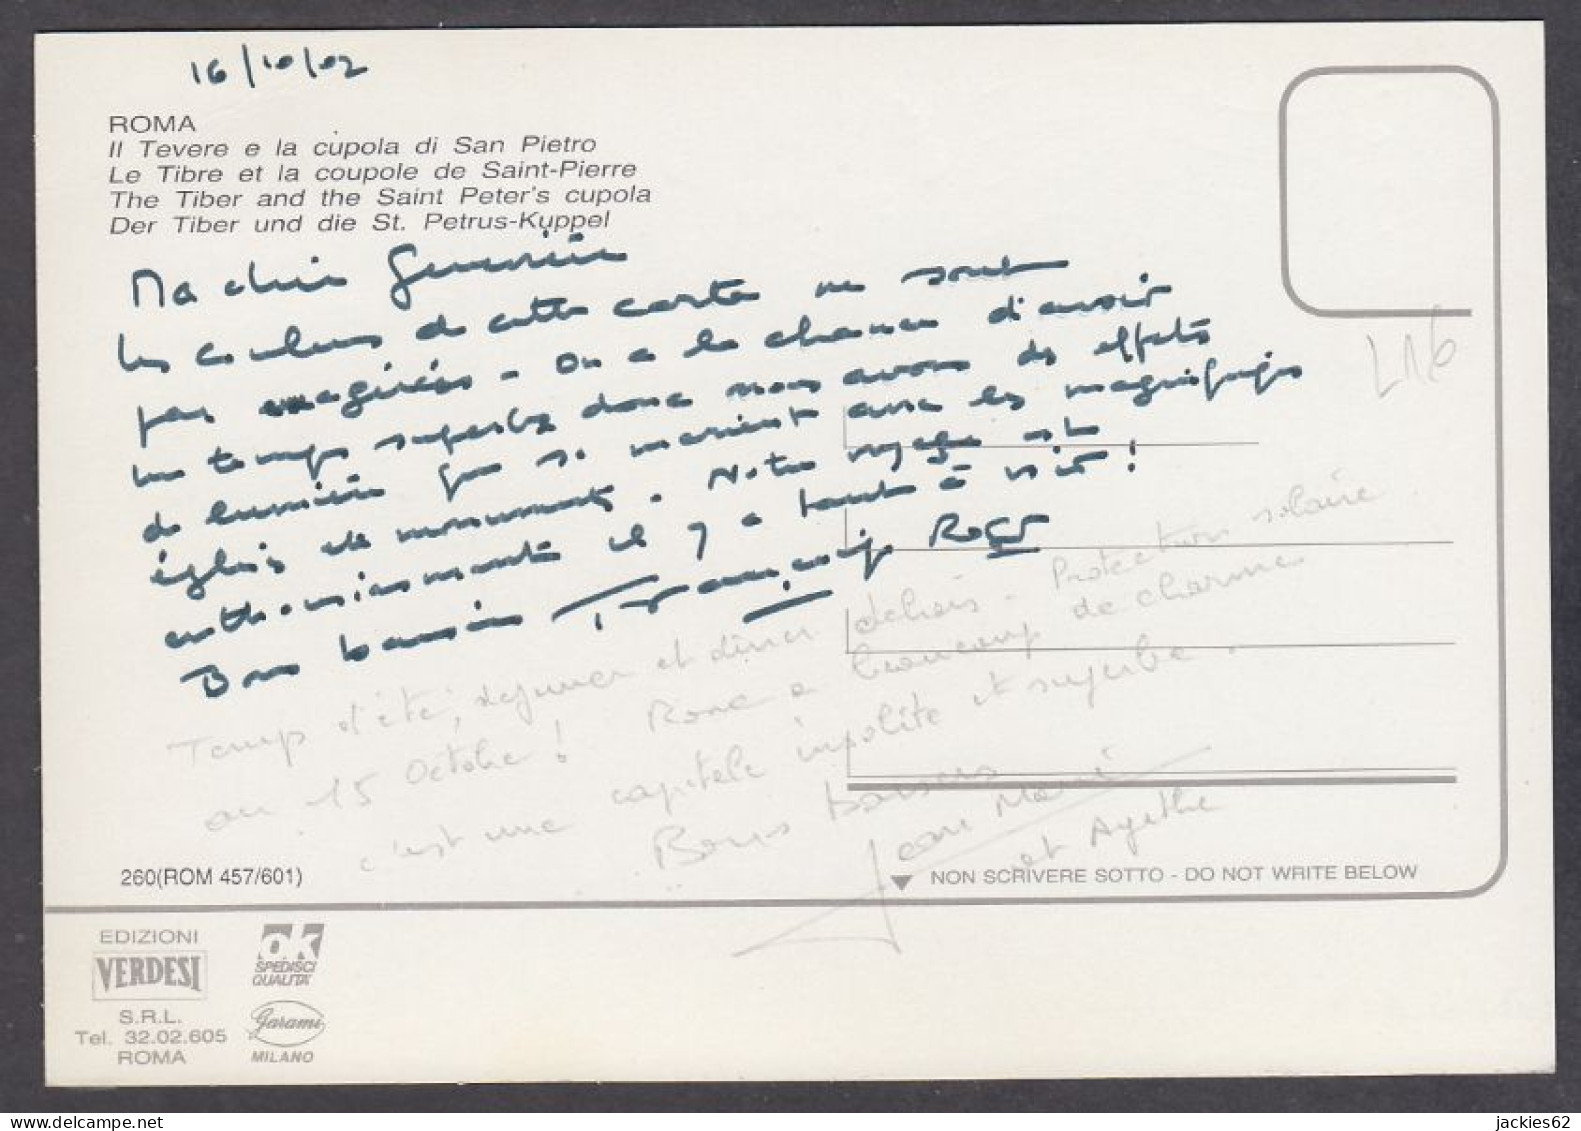 16/10/02
ROMA
Il Tevere e la cupola di San Pietro
Le Tibre et la coupole de Saint-Pierre
The Tiber and the Saint Peter's cupola
Der Tiber und die St. Petrus-Kuppel
Ma chère Geneviève
Les couleurs de cette carte ne sont
pas exagérées - On a la chance d'avoir
un temps superbe donc nous avons des effets
de lumière qui se marient avec les magnifiques
églises et monuments. Notre voyage est
enthousiasmante il y a tant à voir !
Bons baisers Françoise
Temps d'été, déjeuner et dîner dehors - Protection solaire
au 15 Octobre ! Rome a beaucoup de charme
c'est une capitale insolite et superbe.
Bons baisers
Jean Marie
et Agathe
L16
260(ROM 457/601)
NON SCRIVERE SOTTO - DO NOT WRITE BELOW
EDIZIONI
VERDESI
S.R.L.
Tel. 32.02.605
ROMA
OK
SPEDISCI
QUALITA'
Garami
MILANO
delcampe.net
jackies62